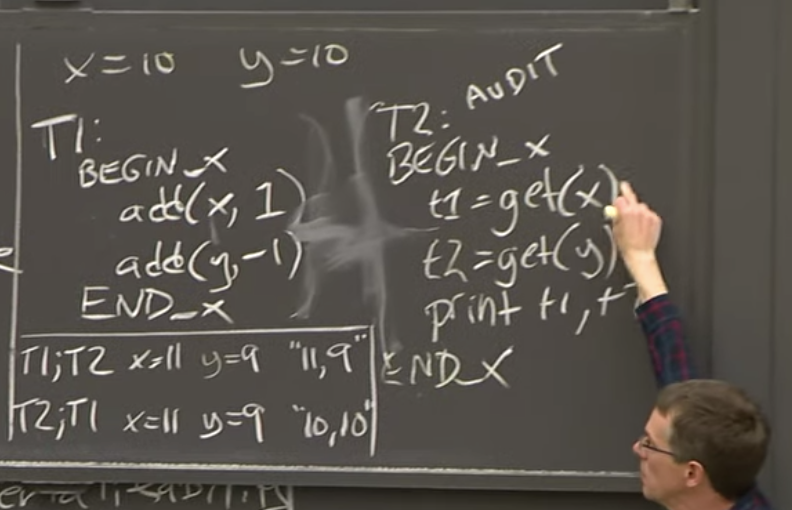 x=10 y=10
T1:
BEGIN_X
add(x, 1)
add(y,-1)
END_X
T2: AUDIT
BEGIN_X
t1=get(x)
t2=get(y)
print t1,
END_X
T1;T2 x=11 y=9 "11,9"
T2;T1 x=11 y=9 "10,10"